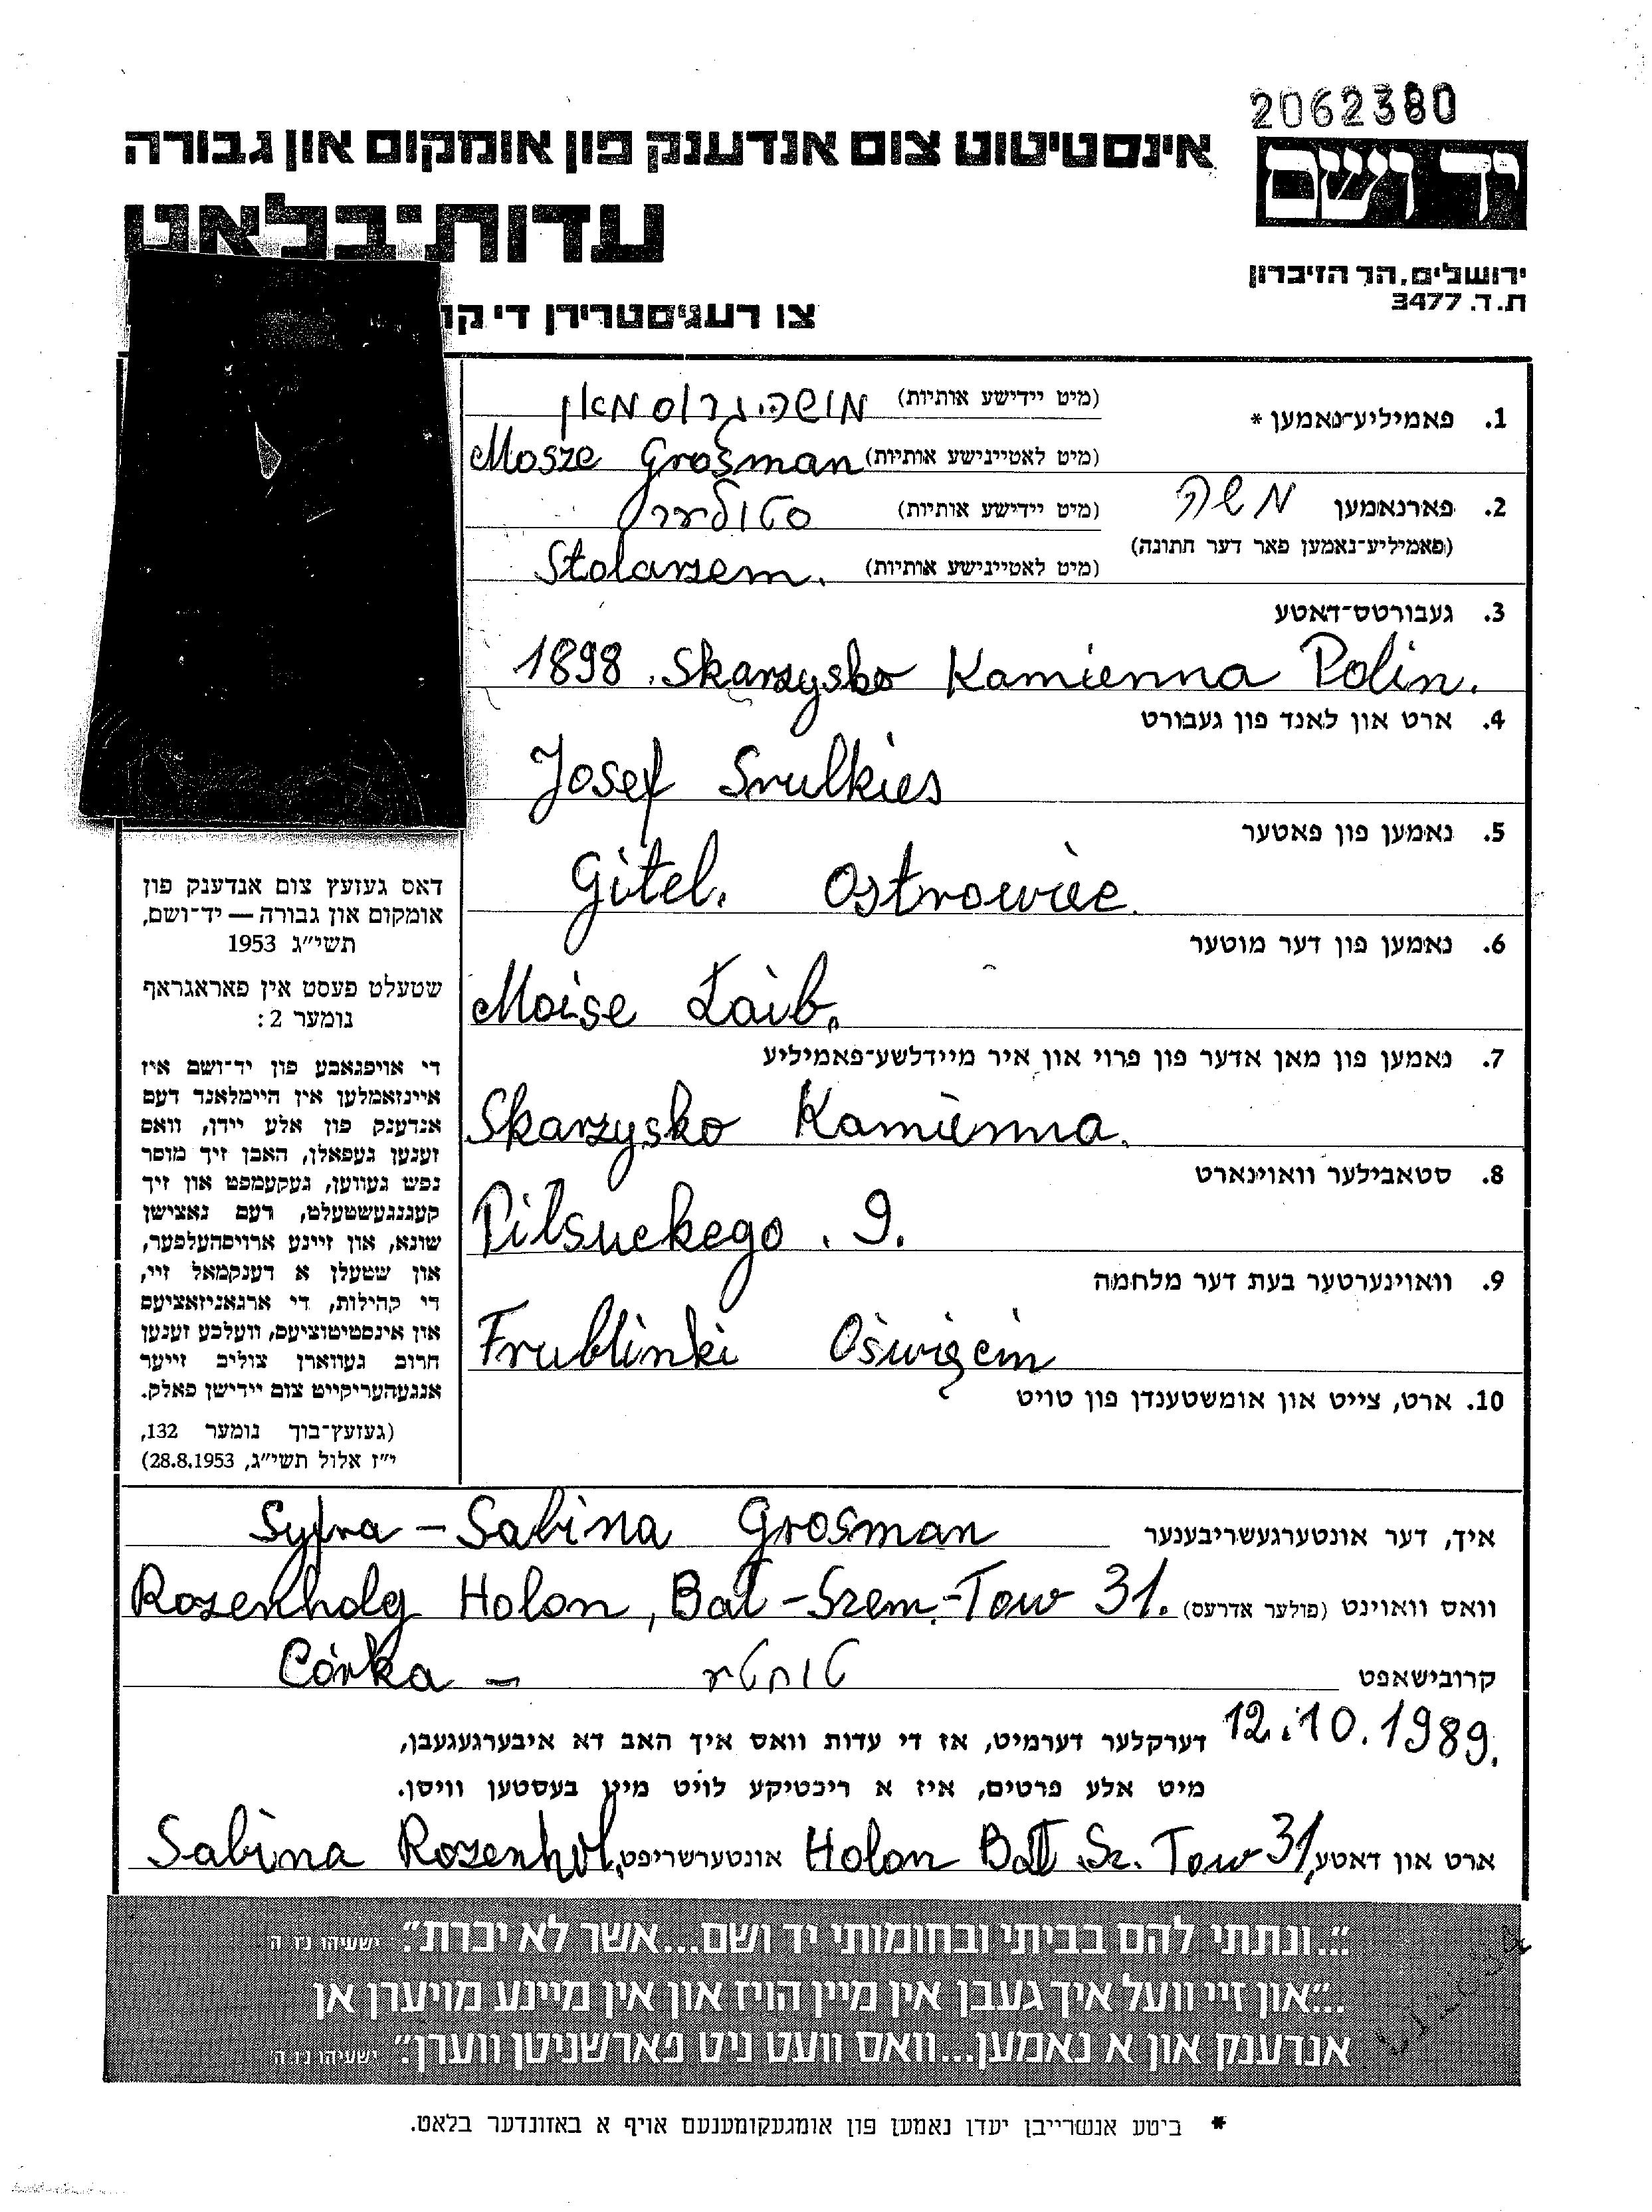 2062380
יד ושם
אינסטיטוט צום אנדענק פון אומקום און גבורה
עדות־בלאט
ירושלים, הר הזיכרון
ת.ד. 3477
צו רעגיסטרירן די קו
1. פאמיליע־נאמען * (מיט יידישע אותיות) מושה גראסמאן
(מיט לאטיינישע אותיות) Mosze Grosman
2. פארנאמען משה (מיט יידישע אותיות) סטולער
(פאמיליע־נאמען פאר דער חתונה) (מיט לאטיינישע אותיות) Stolarzem.
3. געבורטס־דאטע
1898. Skarzysko Kamienna Polin.
4. ארט און לאנד פון געבורט
Josef Srulkies
5. נאמען פון פאטער
Gitel. Ostrowiec.
6. נאמען פון דער מוטער
Moise Laib.
7. נאמען פון מאן אדער פון פרוי און איר מיידלשע־פאמיליע
Skarzysko Kamienna.
8. סטאבילער וואוינארט
Pilsuckego. 9.
9. וואוינערטער בעת דער מלחמה
Frublinki Oświęcim
10. ארט, צייט און אומשטענדן פון טויט
דאס געזעץ צום אנדענק פון
אומקום און גבורה — יד־ושם,
תשי״ג 1953
שטעלט פעסט אין פאראגראף
נומער 2:
די אויפגאבע פון יד־ושם איז
איינזאמלען אין היימלאנד דעם
אנדענק פון אלע יידן, וואס
זענען געפאלן, האבן זיך מוסר
נפש געווען, געקעמפט און זיך
קעגנגעשטעלט, דעם נאצישן
שונא, און זיינע ארויסהעלפער,
און שטעלן א דענקמאל זיי,
די קהילות, די ארגאניזאציעס
און אינסטיטוציעס, וועלכע זענען
חרוב געווארן צוליב זייער
אנגעהעריקייט צום יידישן פאלק.
(געזעץ־בוך נומער 132,
י״ז אלול תשי״ג, 28.8.1953)
איך, דער אונטערגעשריבענער Syfra - Sabina Grosman
וואס וואוינט (פולער אדרעס) Rozenholg Holon, Bat - Szem - Tow 31.
קרובישאפט Córka - טוכטר
דערקלער דערמיט, אז די עדות וואס איך האב דא איבערגעגעבן, 12.10.1989.
מיט אלע פרטים, איז א ריכטיקע לויט מיין בעסטען וויסן.
ארט און דאטע, Holon Bat Sz. Tow 31, אונטערשריפט Sabina Rozenhol.
״...ונתתי להם בביתי ובחומותי יד ושם...אשר לא יכרת״. ישעיהו נ״ו ה׳
...״און זיי וועל איך געבן אין מיין הויז און אין מיינע מויערן אן
אנדענק און א נאמען...וואס וועט ניט פארשניטן ווערן״. ישעיהו נ״ו ה׳
* ביטע אנשרייבן יעדן נאמען פון אומגעקומענעם אויף א באזונדער בלאט.